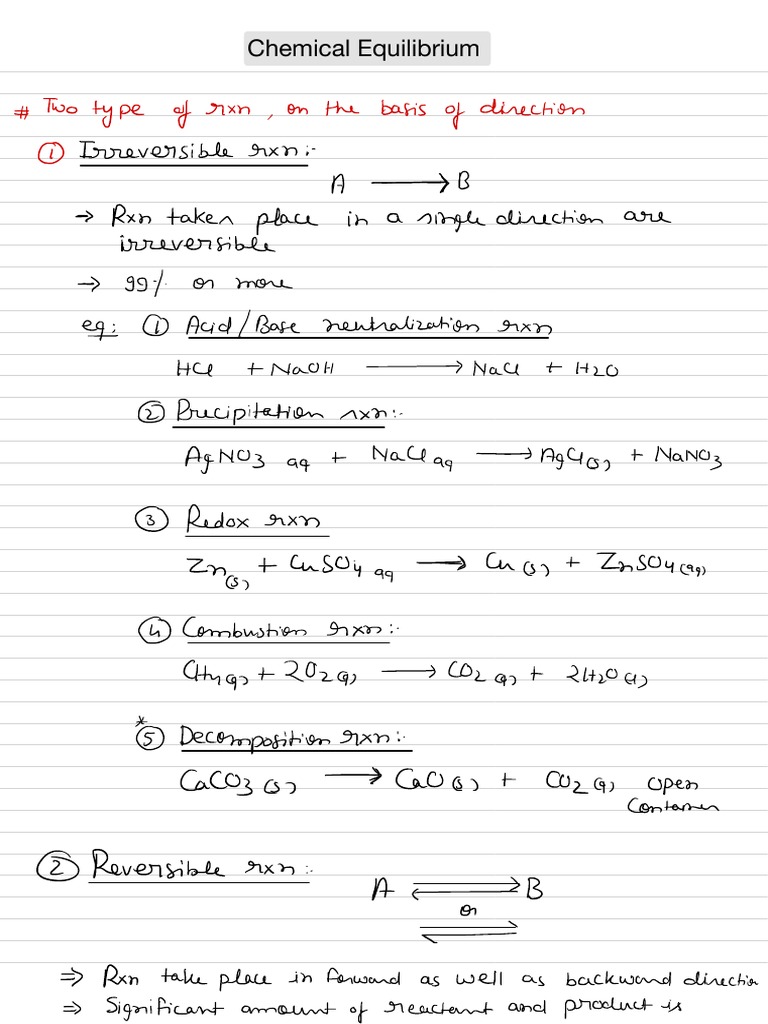 Chemical Equilibrium
# Two type of rxn, on the basis of direction
① Irreversible rxn:-
A ⟶ B
→ Rxn taken place in a single direction are
irreversible
→ 99% or more
eg: ① Acid/Base neutralization rxn
HCl + NaOH ⟶ NaCl + H2O
② Precipitation rxn:-
AgNO3 aq + NaCl aq ⟶ AgCl(s) + NaNO3
③ Redox rxn
Zn(s) + CuSO4 aq ⟶ Cu(s) + ZnSO4(aq)
④ Combustion rxn:-
CH4(g) + 2O2(g) ⟶ CO2(g) + 2H2O(l)
*
⑤ Decomposition rxn:-
CaCO3(s) ⟶ CaO(s) + CO2(g) open
Container
② Reversible rxn:-
A ⇌ B
or
⇌
⇒ Rxn take place in forward as well as backward direction
⇒ Significant amount of reactant and product is